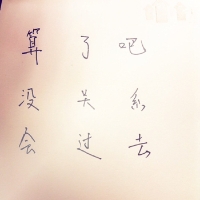 算了吧
没关系
会过去